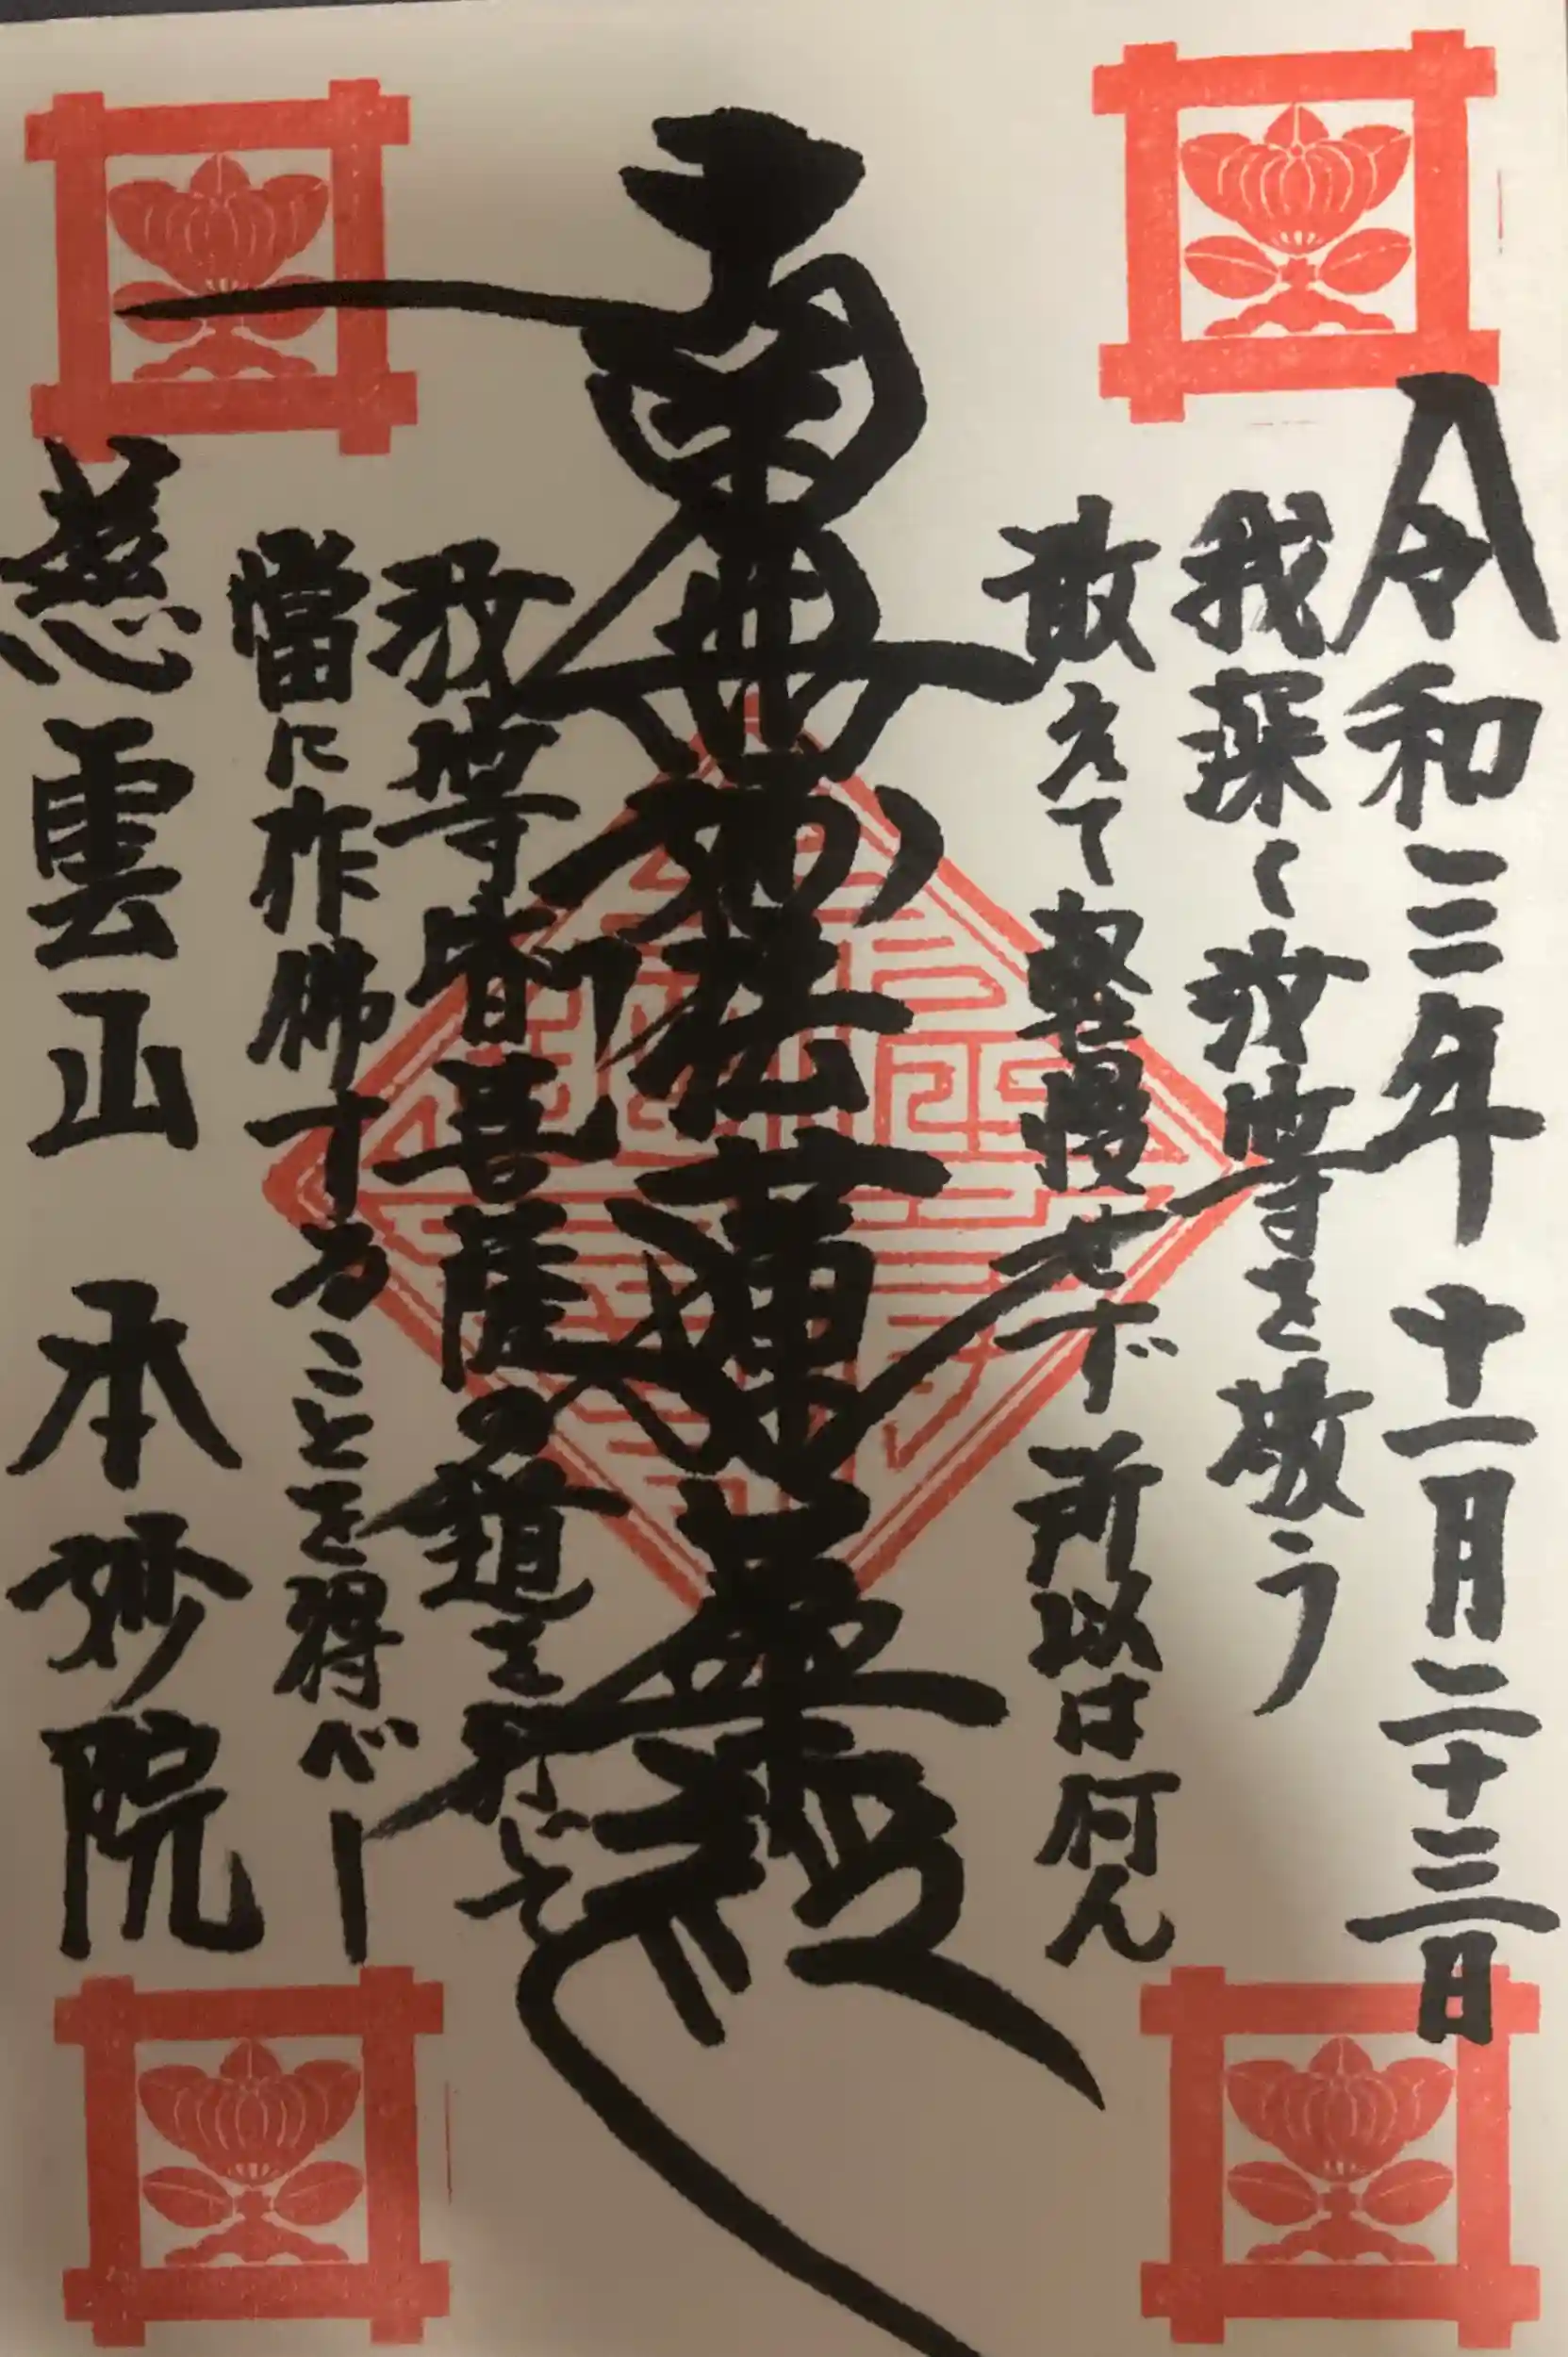 令和三年 十一月二十三日
我深く汝等を敬う
敢えて軽慢せず 所以は何ん
南無妙法蓮華経
汝等皆菩薩の道を行じて
當に作佛することを得べし
慈雲山 本妙院